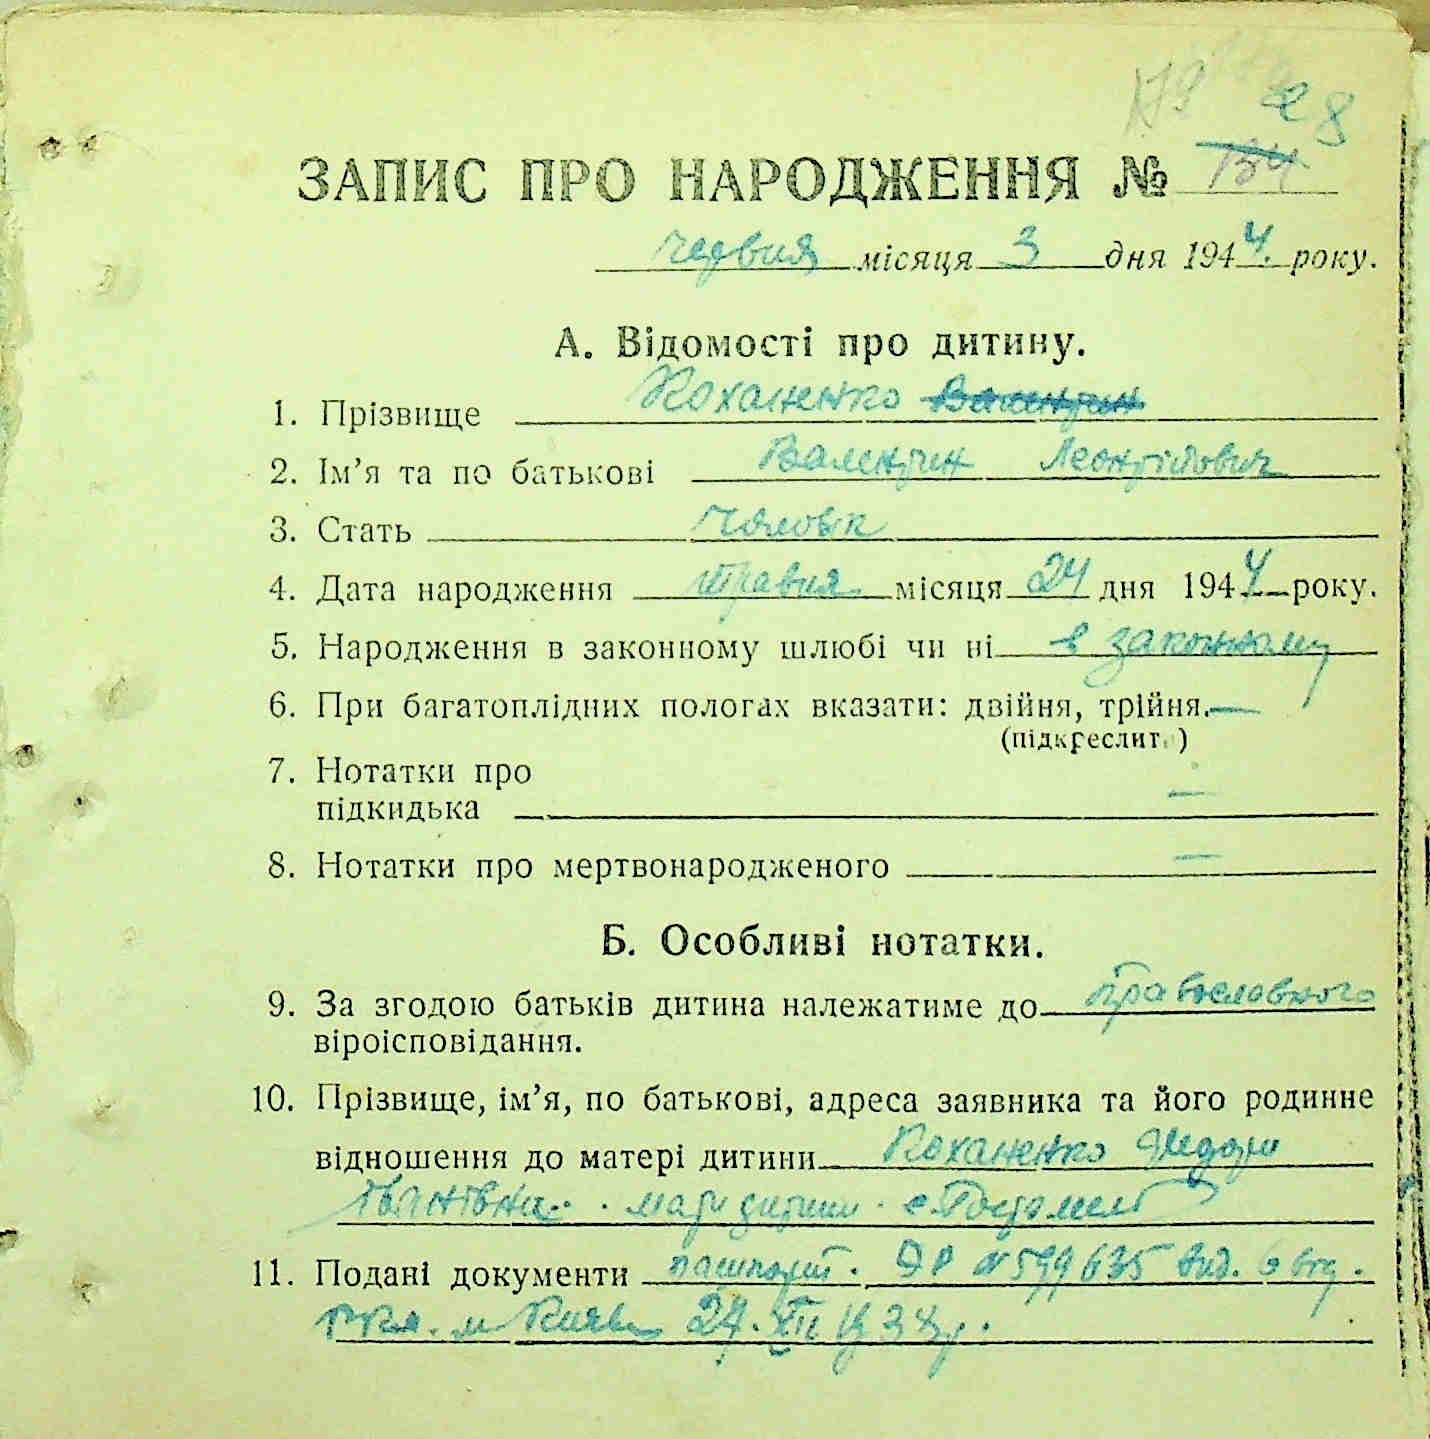 179
28
ЗАПИС ПРО НАРОДЖЕННЯ № 134
червня місяця 3 дня 1944. року.
А. Відомості про дитину.
1. Прізвище Коханенко Валентин
2. Ім'я та по батькові Валентин Леонтійович
3. Стать чоловік
4. Дата народження травня місяця 24 дня 1944 року.
5. Народження в законному шлюбі чи ні в законному
6. При багатоплідних пологах вказати: двійня, трійня. —
(підкреслити)
7. Нотатки про
підкидька —
8. Нотатки про мертвонародженого —
Б. Особливі нотатки.
9. За згодою батьків дитина належатиме до православного
віроісповідання.
10. Прізвище, ім'я, по батькові, адреса заявника та його родинне
відношення до матері дитини Коханенко
Іванівна. мати дитини. с.
11. Подані документи пашпорт. № 599635 вид. 6 від.
м Київ 24. XII 1938р.